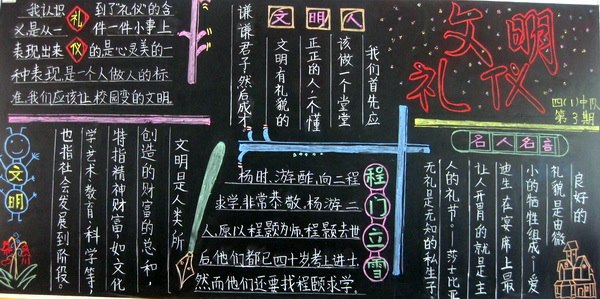 我认识礼到了礼仪的含
义是从一件一件小事上
表现出来仪的是心灵美的一
种表现,是个人做人的标
准,我们应该让校园变的文明
文明人
我们首先应
该做一个堂堂
正正的人,一个懂
文明有礼貌的
谦谦君子,然后成才
文明
礼仪
四(1)中队
第3期
名人名言
良好的
礼貌是由微
小的牺牲组成。爱
迪生 在宴席上最
让人开胃的就是主
人的礼节。 莎士比亚
无礼是无知的私生子
文明
文明是人类所
创造的财富的总和,
特指精神财富,如文化
学、艺术、教育、科学等,
也指社会发展到阶段。
程门立雪
杨时、游酢,向二程
求学,非常恭敬。杨游二
人,原以程颢为师,程颢去世
后,他们都已四十岁,考上进士,
然而他们还要找程颐求学。